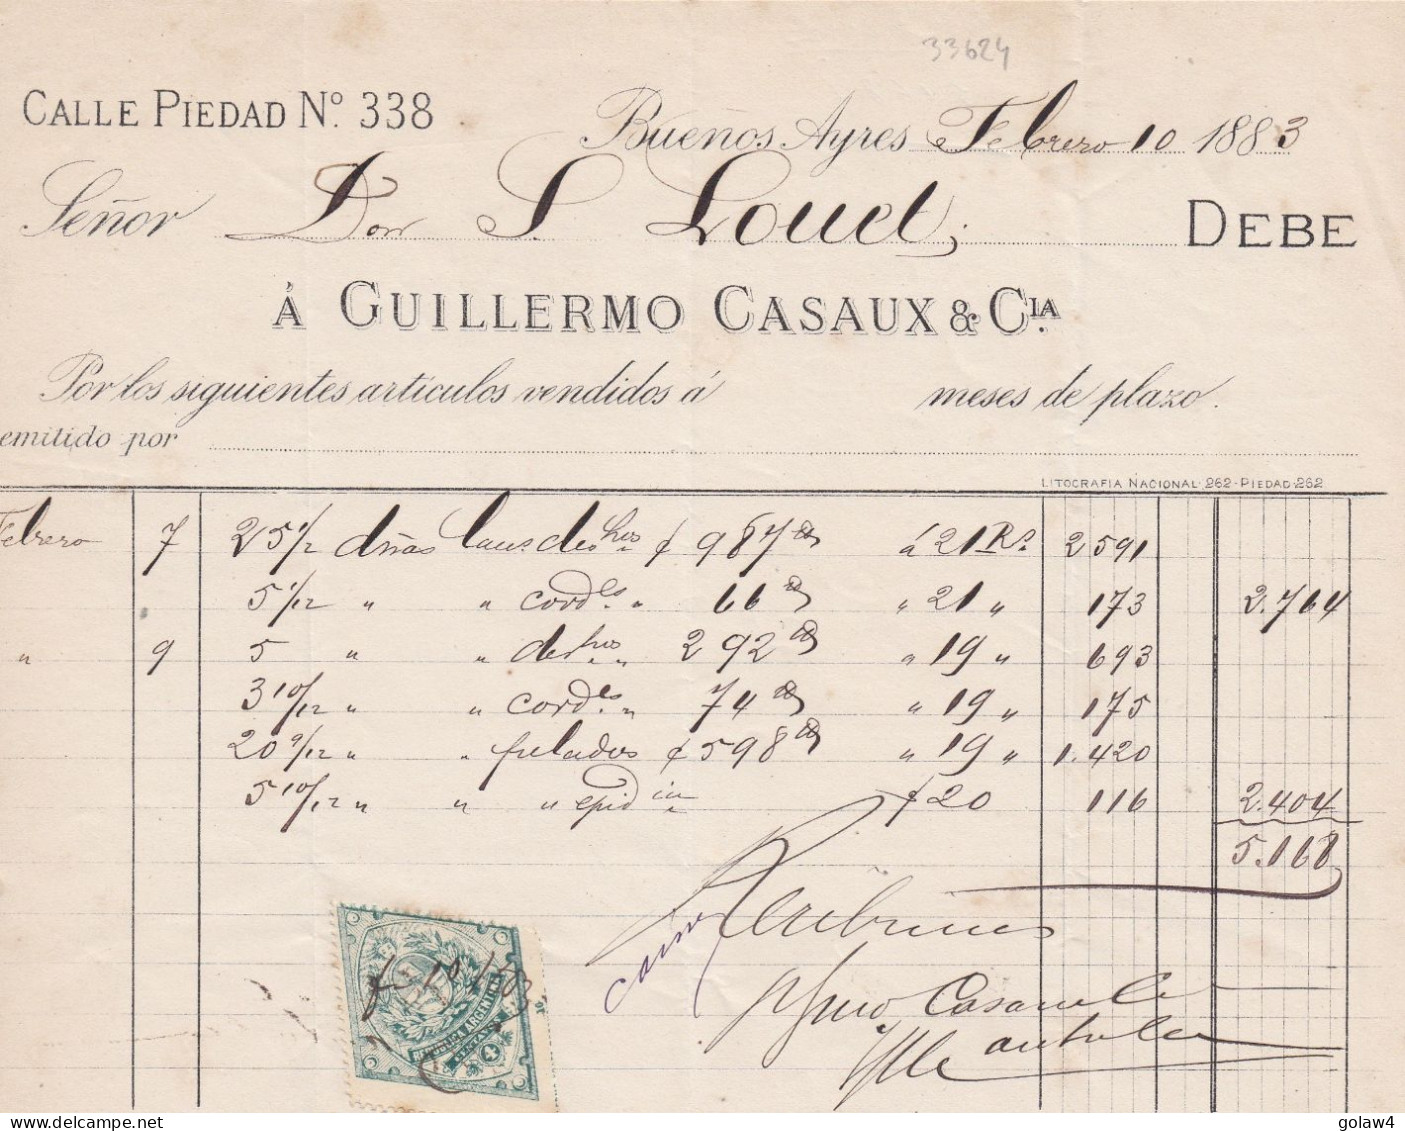 33624
CALLE PIEDAD Nº. 338
Buenos Ayres Febrero 10 1883
Señor Don S. Louet DEBE
Á GUILLERMO CASAUX & CIA.
Por los siguientes artículos vendidos á meses de plazo.
emitido por
LITOGRAFIA NACIONAL-262-PIEDAD-262
Febrero 7 25 1/2 dñas lanr desh.os ¢ 987 á 21 Rs. 2591
5 1/12 " " cord.es " 66 " 21 " 173 2.764
" 9 5 " " desh.os " 292 " 19 " 693
3 10/12 " " cord.es " 74 " 19 " 175
20 9/12 " " pelados ¢ 598 " 19 " 1.420
5 10/12 " " " epid 20 116 2.404
5.168
Recibimos
Casaux
REPUBLICA ARGENTINA
4